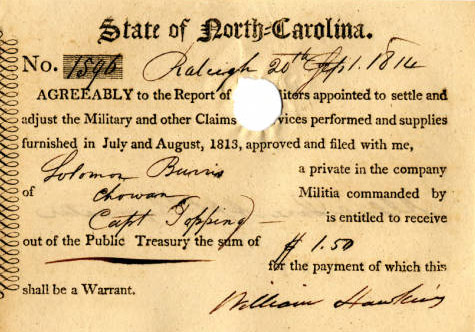 State of North-Carolina.
No. 1596 Raleigh 20th Apl. 1814
AGREEABLY to the Report of itors appointed to settle and
adjust the Military and other Claims vices performed and supplies
furnished in July and August, 1813, approved and filed with me,
Solomon Burris a private in the company
of Chowan Militia commanded by
Capt Topping is entitled to receive
out of the Public Treasury the sum of $ 1.50
for the payment of which this
shall be a Warrant.
William Hawkins